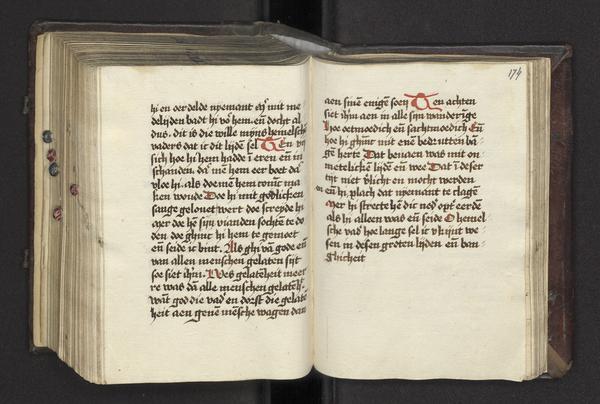 hi en oerdelde nyemant en̄ mit me
delijden badt hi vo᷒ hem. en̄ docht al
dus. dit is die wille mijns hemelsche
vaders dat ic dit lijdē sel En
sich hoe hi hem hadde ī eren en̄ in
schanden. dā mē hem eer boet dā
vloe hi. als doe mē hem conīc ma
ken woude Doe hi mit godlicken
sange gelouet wert doe screyde hi
mer doe hē sijn vianden sochtē te do
den doe ghinc hi hem te gemoet
en̄ seide ic bint. Als ghi vā gode en̄
van allen menschen gelaten sijt
soe siet ihm̄. Wes gelatēheit meer
re was dā alle menschen gelatēh᷒.
wāt god die vad᷒ en dorst die gelatē
heit aen genē mēsche wagen dan
174
aen sinē enigē soen Ten achten
siet ihm̄ aen in alle sijn wanderīge
hoe oetmoedich en̄ sachtmoedich En̄
hoe hi ghinc mit enē bedructen bā
gē herte Dat bevaen was mit on
metelickē lijdē en̄ wee Dat ī deser
tijt niet v᷒licht en mocht werden
en̄ hi plach dat nyemant te clagē
mer hi strecte hē dic ned᷒ opt᷒ eerde
als hi alleen was en̄ seide O hemel
sche vad᷒ hoe lange sel ic v᷒kuijnt we
sen in desen groten lijden en̄ ban
ghicheit